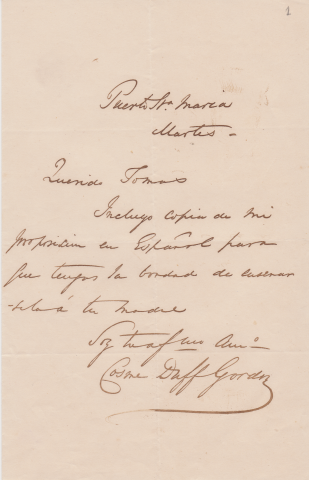 1
Puerto Sta Maria
Martes -
Querido Tomas
Incluyo copia de mi
proposicion en Español para
que tengas la bondad de ensenar
-sela á tu madre
Soy tu af mo Amo
Cosme Duff Gordon